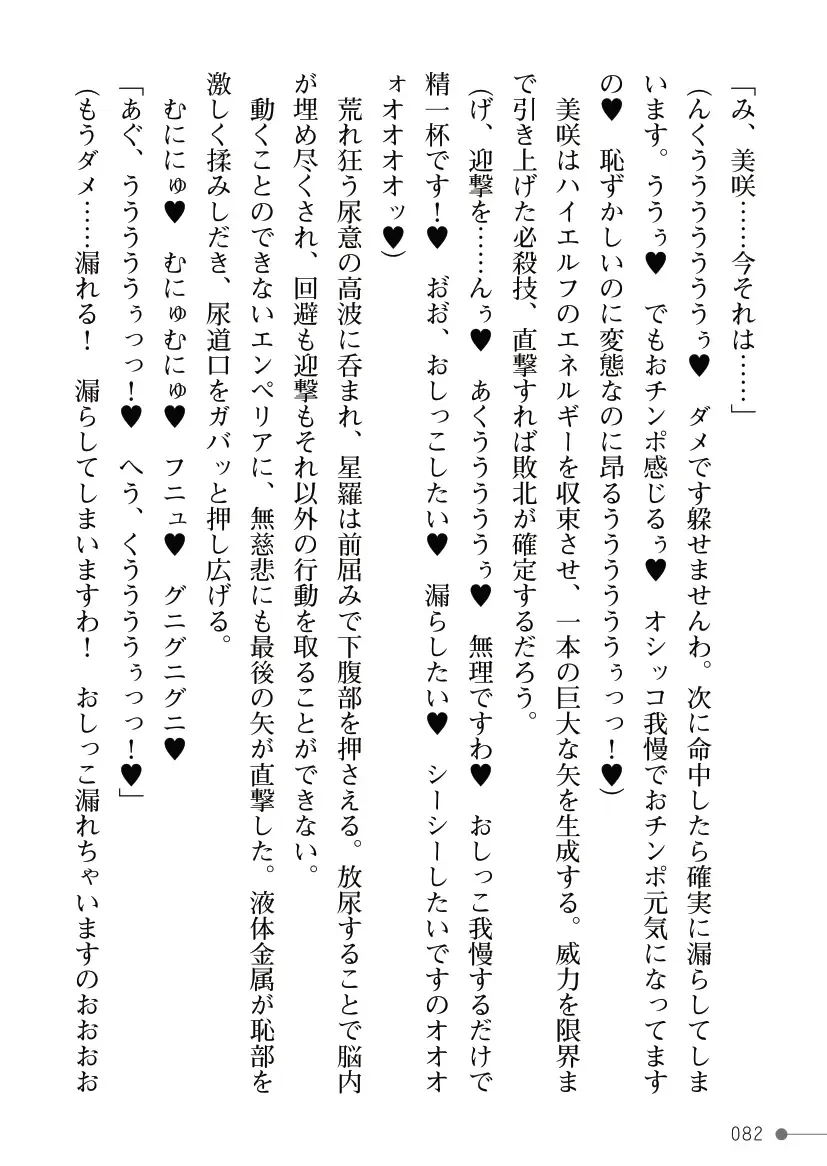 「み、美咲……今それは……」
(んくううううううぅ♥　ダメです躱せませんわ。次に命中したら確実に漏らしてしま
います。ううぅ♥　でもおチンポ感じるぅ♥　オシッコ我慢でおチンポ元気になってます
の♥　恥ずかしいのに変態なのに昂るううううううぅっっ！♥)
　美咲はハイエルフのエネルギーを収束させ、一本の巨大な矢を生成する。威力を限界ま
で引き上げた必殺技、直撃すれば敗北が確定するだろう。
(げ、迎撃を……んぅ♥　あくうううううぅ♥　無理ですわ♥　おしっこ我慢するだけで
精一杯です！♥　お゛お゛、おしっこしたい♥　漏らしたい♥　シーシーしたいですのオオオ
ォオオオオッ♥)
　荒れ狂う尿意の高波に呑まれ、星羅は前屈みで下腹部を押さえる。放尿することで脳内
が埋め尽くされ、回避も迎撃もそれ以外の行動を取ることができない。
　動くことのできないエンペリアに、無慈悲にも最後の矢が直撃した。液体金属が恥部を
激しく揉みしだき、尿道口をガバッと押し広げる。
　むににゅ♥　むにゅむにゅ♥　フニュ♥　グニグニグニ♥
「あぐ、うううううぅっっ！♥　へう、くううううぅっっ！♥」
(もうダメ……漏れる！　漏らしてしまいますわ！　おしっこ漏れちゃいますのおおおお
082